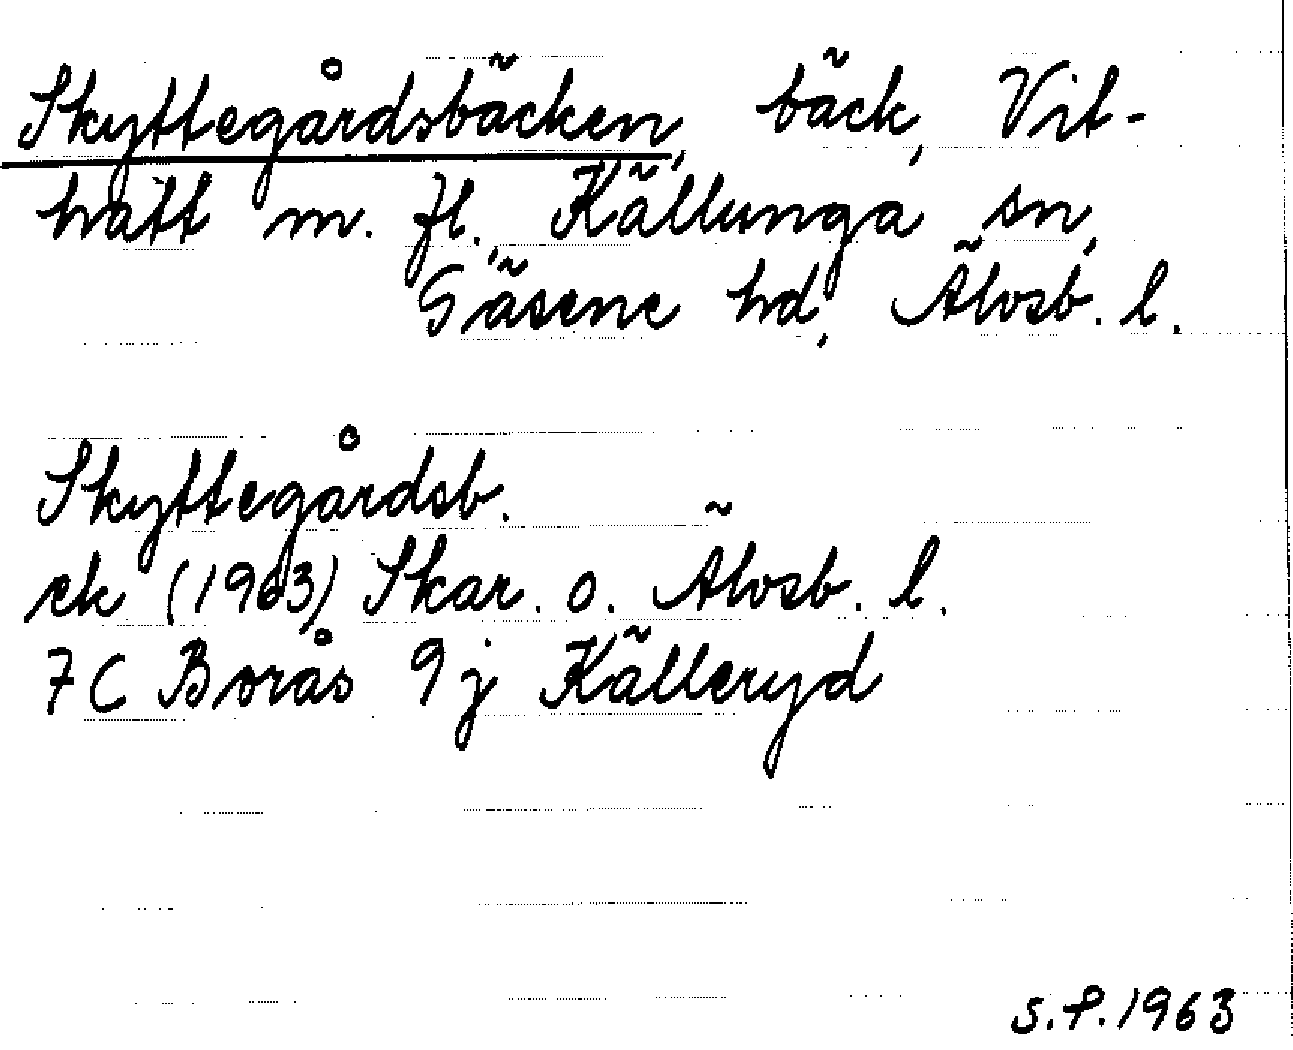 Skyttegårdsbäcken, bäck, Vit-
hatt m. fl., Källunga sn,
Gäsene hd, Älvsb. l.
Skyttegårdsb.
ek (1963) Skar. o. Älvsb. l.
7C Borås 9j Källeryd
S.P. 1963